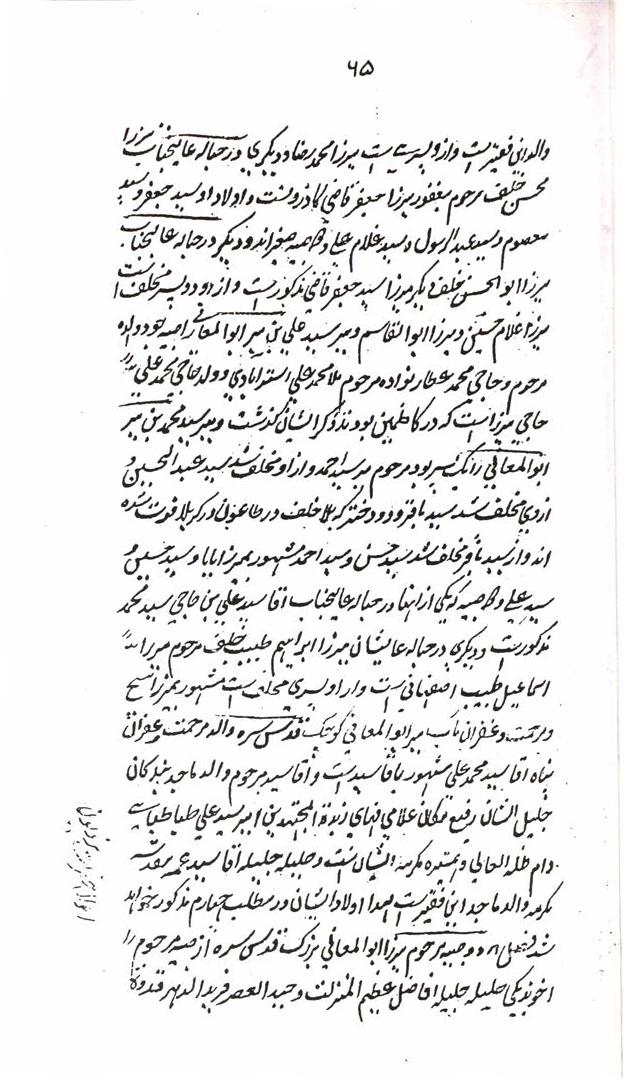 ۶۵
والد این فقیر است و از او پسریست میرزا محمد رضا و دیگری در حباله عالیجناب میرزا
محسن خلف مرحوم مغفور میرزا جعفر قاضی کازرونست و اولاد او سید جعفر و سید
معصوم و سید عبد الرسول و سید غلام علی و صبیه صغیر اند و دیگر در حباله عالیجناب
میرزا ابو الحسن خلف دیگر میرزا سید جعفر قاضی مذکور است و از او دو پسر مخلف است
میرزا غلام حسین و میرزا ابو القاسم و میر سید علی بن میر ابو المعالی را صبیه بود والده
مرحوم حاجی محمد عطار نواده مرحوم ملا محمد علی استرابادی و ولد حاجی محمد علی
حاجی میرزا است که در کاظمین بود و ذکر ایشان گذشت و میر سید محمد بن میر
ابو المعالی را یک پسر بود مرحوم میر سید احمد و از او مخلف شد سید عبد الحسین و
از وی مخلف شد سید باقر و دو دختر که بلا خلف در طاعون در کربلا فوت شده
اند و از سید باقر مخلف شد سید حسن و سید احمد مشهور بمیرزا بابا و سید حسین و
سید علی و صبیه که یکی از انها در حباله عالیجناب اقا سید علی بن حاجی سید محمد
مذکور است و دیگری در حباله عالیشان میرزا ابراهیم طبیب خلف مرحوم میرزا
اسماعیل طبیب اصفهانی است و از او پسری مخلف است مشهور بمیرزا مسیح
و مرحمت و غفران مآب میر ابو المعالی کوچک قدس سره والد مرحمت و غفران
پناه اقا سید محمد علی مشهور باقا سید است و اقا سید مرحوم والد ماجد بندکان
جلیل الشان رفیع مکان علامی فهامی زبدة المجتهدین امیر سید علی طباطبایی
دام ظله العالی و همشیره مکرمه ایشان است و جلیله جلیله اقا سید عمه مقدسه
مکرمه والد ماجد این فقیر است لهذا اولاد ایشان در مطلب چهارم مذکور خواهد
شد فصل دو صبیه مرحوم میرزا ابو المعالی بزرک قدس سره از صبیه مرحوم
اخوند یکی حلیله جلیله افاضل عظیم المنزلت وحید العصر فرید الدهر قدوة